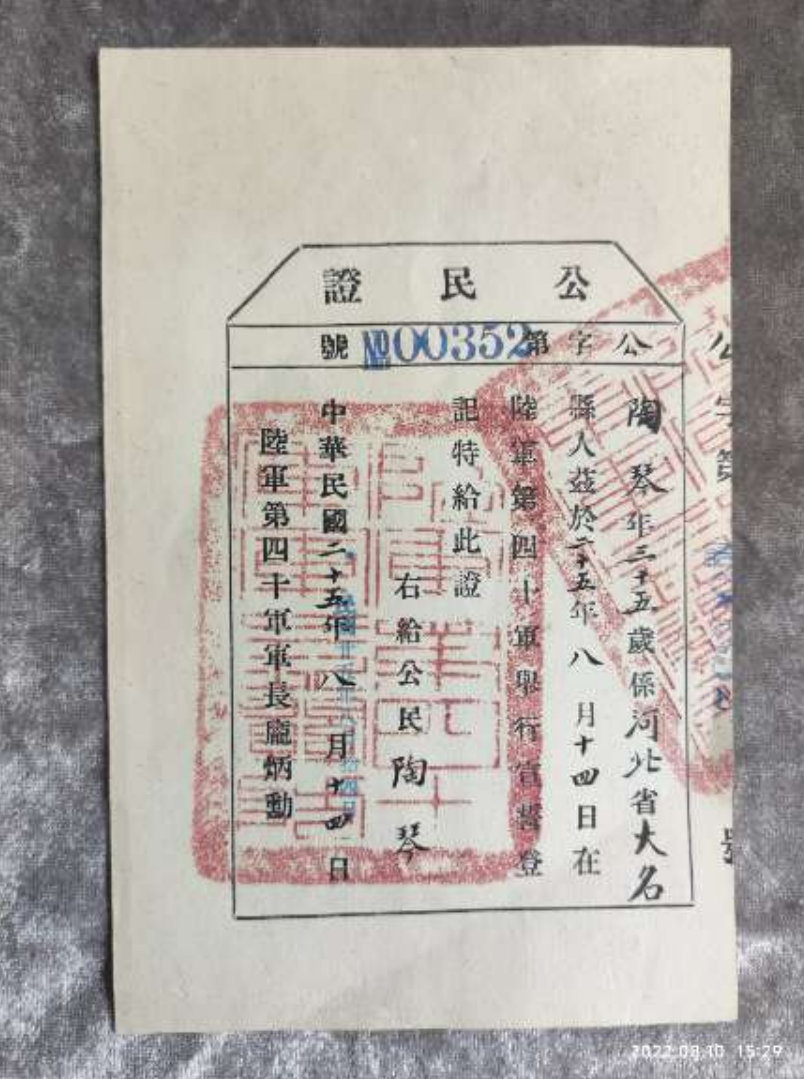 公民證
公字第№00352號
陶琴年三十五歲係河北省大名
縣人茲於二十五年八月十四日在
陸軍第四十軍舉行宣誓登
記特給此證
右給公民陶琴
中華民國二十五年八月十四日
陸軍第四十軍軍長龐炳勳
公字第
號
2022.08.10 15:29